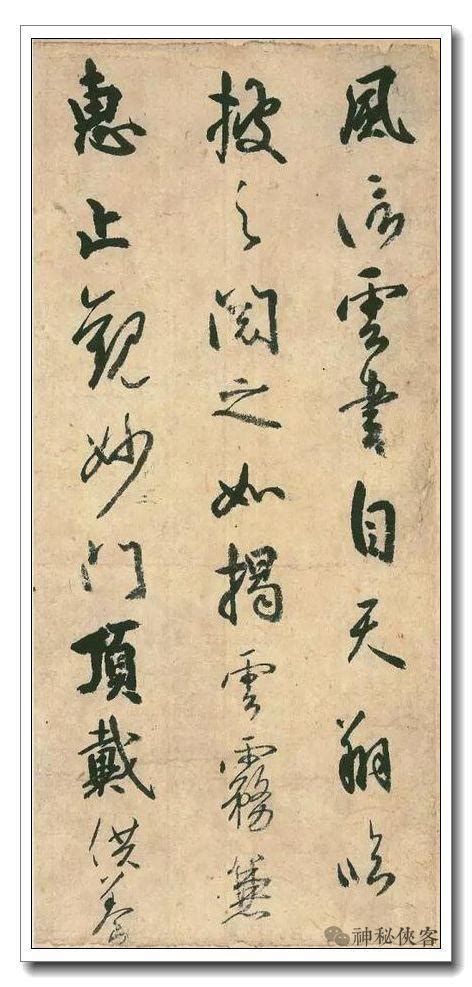 風信雲書自天翔臨
披之閱之如揭雲霧兼
惠止觀妙門頂戴供養
神秘俠客